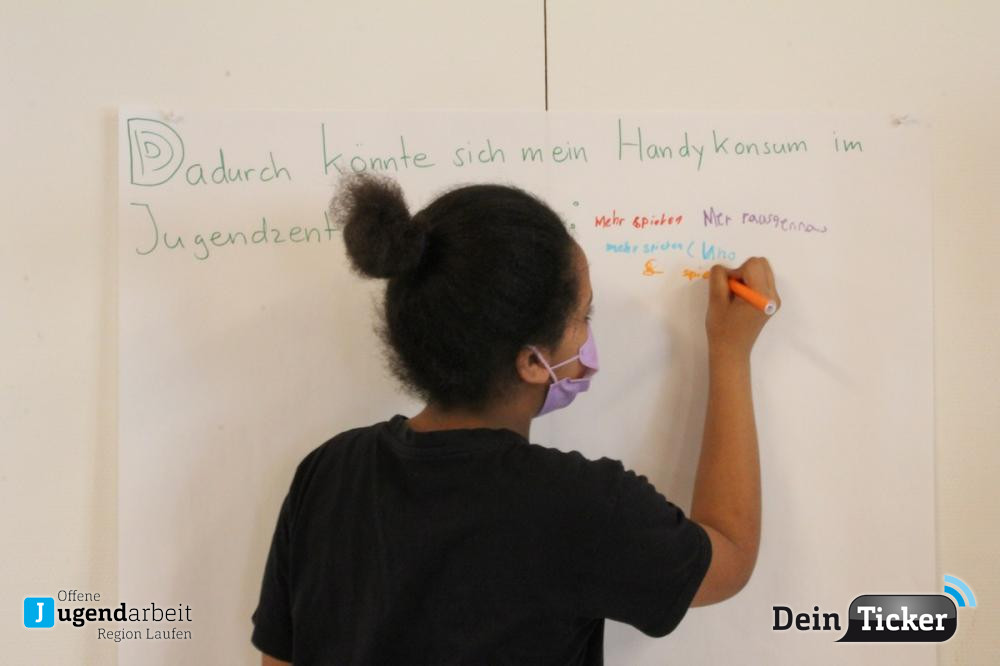 Dadurch könnte sich mein Handykonsum im
Jugendzent :
Mehr spielen Mer
mehr spielen ( Uno
& spie
Offene
Jugendarbeit
Region Laufen
Dein Ticker